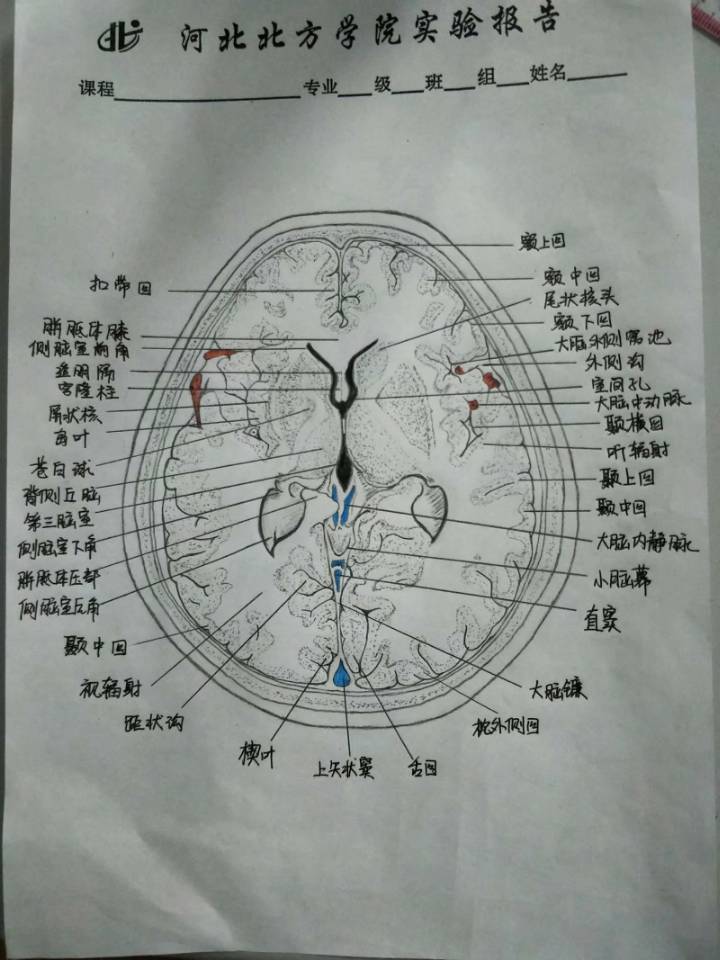 河北北方学院实验报告
课程 专业 级 班 组 姓名
扣带回
胼胝体膝
侧脑室前角
透明隔
穹隆柱
屏状核
岛叶
苍白球
背侧丘脑
第三脑室
侧脑室下角
胼胝体压部
侧脑室后角
颞中回
视辐射
距状沟
楔叶
上矢状窦
舌回
额上回
额中回
尾状核头
额下回
大脑外侧窝池
外侧沟
室间孔
大脑中动脉
颞横回
听辐射
颞上回
颞中回
大脑内静脉
小脑幕
直窦
大脑镰
枕外侧回